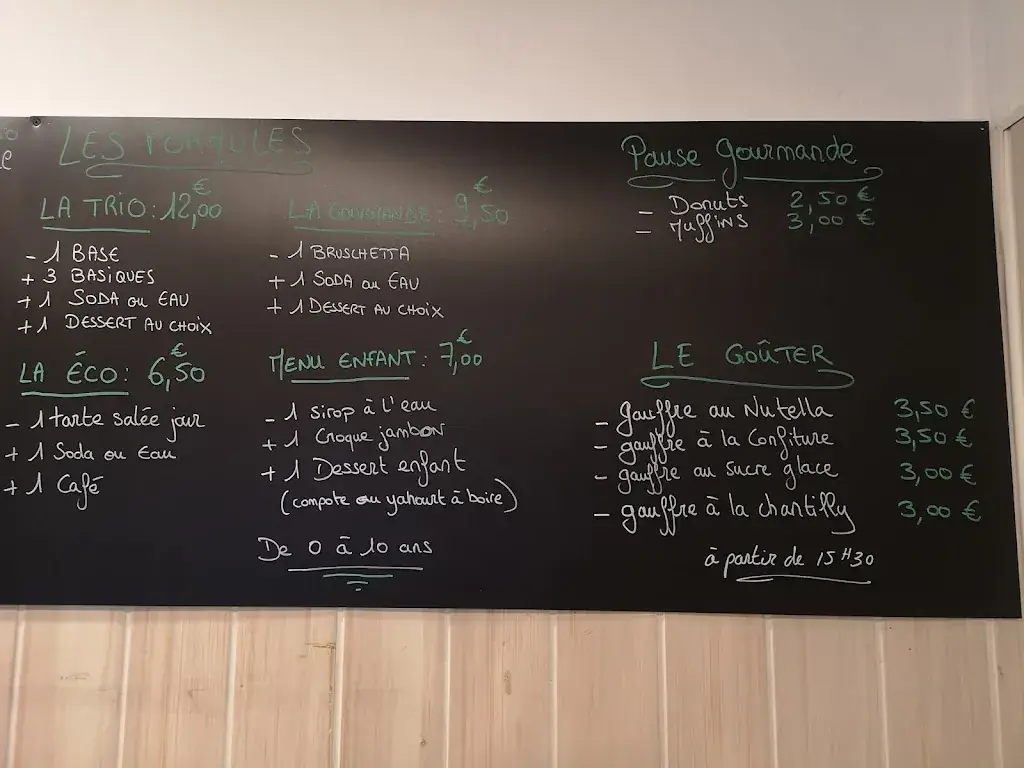 LES FORMULES
LA TRIO: 12,00 €
- 1 BASE
+ 3 BASIQUES
+ 1 SODA ou EAU
+ 1 DESSERT AU CHOIX
LA GOURMANDE: 9,50 €
- 1 BRUSCHETTA
+ 1 SODA ou EAU
+ 1 DESSERT AU CHOIX
LA ÉCO: 6,50 €
- 1 tarte salée jour
+ 1 Soda ou Eau
+ 1 Café
MENU ENFANT: 7,00 €
- 1 sirop à l'eau
+ 1 Croque jambon
+ 1 Dessert enfant
(compote ou yahourt à boire)
De 0 à 10 ans
Pause gourmande
- Donuts 2,50 €
- Muffins 3,00 €
LE GOÛTER
- gauffre au Nutella 3,50 €
- gauffre à la Confiture 3,50 €
- gauffre au sucre glace 3,00 €
- gauffre à la chantilly 3,00 €
à partir de 15H30